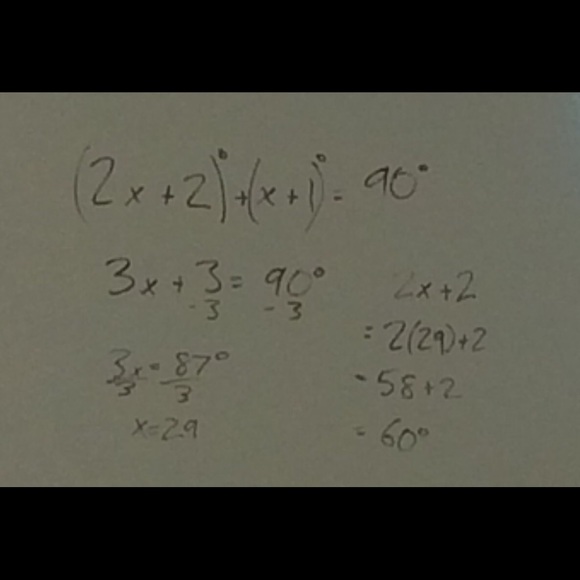 (2x+2)°+(x+1)°= 90°
3x + 3 = 90°
-3 -3
3x = 87°
3 3
x=29
2x+2
= 2(29)+2
= 58+2
= 60°